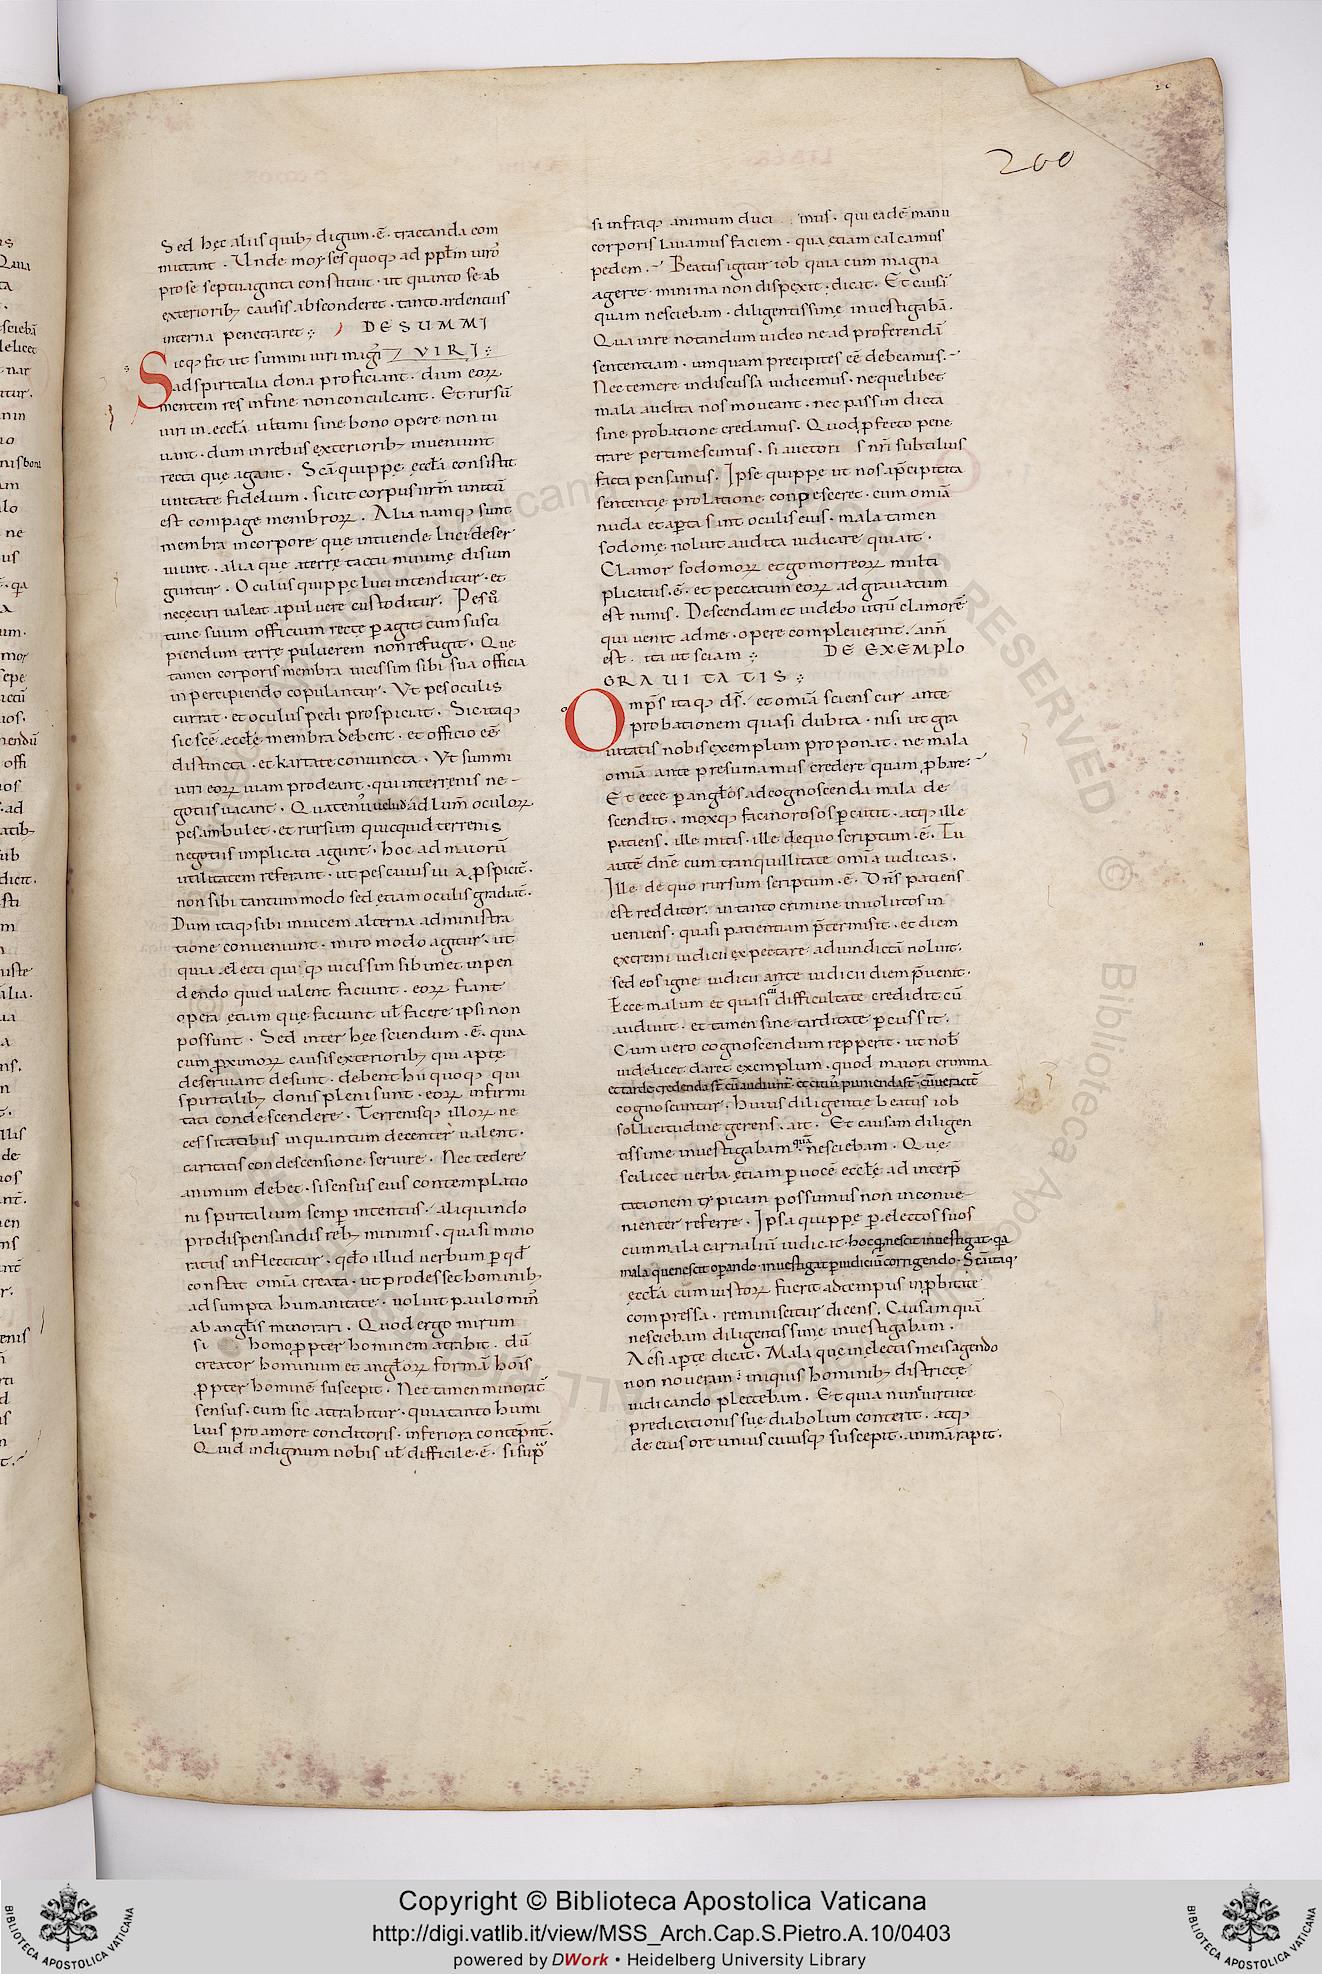 200
Sed hęc aliis quib; digum .ē. tractanda com
mittant . Unde moyses quoq; ad pplm̄ uirō
pro se septuaginta constituit . ut quanto se ab
exteriorib; causis absconderet . tanto ardentius
interna penetraret ⁘ DE SUMMI
VIRI ⁘
Sicq; fit ut summi uiri magis
ad spiritalia dona proficiant . dum eoꝝ
mentem res infime non conculcant . Et rursū
uiri in eccl̄a ultimi sine bono opere non ui
uant . dum in rebus exteriorib; inueniunt
recta que agant . Scā quippę ęccl̄a consistit
unitate fidelium . sicut corpus nr̄m unitū
est compage membroꝝ . Alia namq; sunt
membra in corpore quę intuendę luci deser
uiunt . alia quę a terrę tactu minimę disiun
guntur . Oculus quippe luci intenditur . et
ne cęcari ualeat a puluere custoditur . Pes ů
tunc suum officium recte ꝑagit cum susci
piendum terrę puluerem non refugit . Que
tamen corporis membra uicissim sibi sua officia
in percipiendo copulantur . Ut pes oculis
currat . et oculus pedi prospiciat . Sic itaq;
sic scę̄ ęccl̄ę membra debent . et officio eē
distincta . et karitate coniuncta . Ut summi
uiri eoꝝ uiam prodeant . qui in terrenis ne-
gotiis uacant . Quatenus uelud ad lum̄ oculoꝝ
pes ambulet . et rursum quicquid terrenis
negotiis implicati agunt . hoc ad maiorū
utilitatem referant . ut pes cuius uia ꝓspicit̄ .
non sibi tantummodo sed ętiam oculis gradiat̄ .
Dum itaq; sibi inuicem alterna administra
tione conueniunt . miro modo agitur . ut
quia electi quiq; uicissim sibimet inpen
dendo quid ualent faciunt . eoꝝ fiant
opera ętiam que faciunt ul̄ facere ipsi non
possunt . Sed inter hęc sciendum .ē. quia
cum ꝓximoꝝ causis exteriorib; qui aptę
deseruiant desunt . debent hii quoq; qui
spiritalib; donis pleni sunt . eoꝝ infirmi
tati condescendere . Terrenisq; illoꝝ ne
cessitatibus inquantum decenter ualent .
caritatis condescensione seruire . Nec tedere
animum debet . si sensus eius contemplatio
ni spiritalium semꝑ intentus . aliquando
pro dispensandis reb; minimis . quasi mino
ratus inflectitur . qdo illud uerbum ꝑ qđ
constat omīa creata . ut prodesset hominib;
adsumpta humanitate . uoluit paulo min̄
ab angl̄is minorari . Quod ergo mirum
si homo ꝓpter hominem atrahit . dū
creator hominum et angl̄oꝝ formā hoīs
ꝓpter hominē suscepit . Nec tamen minorat̄
sensus . cum sic attrahitur . quia tanto humi
lius pro amore conditoris . inferiora contēpnit̄ .
Quid indignum nobis ul̄ difficile .ē. si sup̄
si infraq; animum duci mus . qui eadē manu
corporis lauamus faciem . qua ętiam calcamus
pedem . Beatus igitur iob quia cum magna
ageret . minima non dispexit . dicat . Et causā
quam nesciebam . diligentissime inuestigabā .
Qua in re notandum uideo ne ad proferendā
sententiam . umquam precipites eē debeamus .
Nec temere indiscussa iudicemus . ne quelibet
mala audita nos moueant . nec passim dicta
sine probatione credamus . Quod ꝓfecto ꝑpe
trare pertimescimus . si auctori s nr̄i subtilius
facta pensamus . Ipse quippę ut nos a p̄cipitata
sententie prolatione conpesceret . cum omīa
nuda et aꝑta sint oculis eius . mala tamen
sodomę noluit audita iudicare qui ait .
Clamor sodomoꝝ et gomorreoꝝ multi
plicatus .ē. et peccatum eoꝝ adgrauatum
est nimis . Descendam et uidebo utrū clamorē
qui uenit ad me . opere compleuerint . an n̄
est . ita ut sciam ⁘ DE EXEMPLO
GRAUITATIS ⁘
Omp̄s itaq; ds̄ . et omīa sciens cur ante
probationem quasi dubita . nisi ut gra
uitatis nobis exemplum proponat . ne mala
omīa ante presumamus credere quam ꝓbare .
Et ecce ꝑ angl̄os ad cognoscenda mala de
scendit . moxq; facinorosos ꝑcutit . atq; ille
patiens . ille mitis . ille de quo scriptum .ē. Tu
autē dn̄e cum tranquillitate omīa iudicas .
Ille de quo rursum scriptum .ē. Dn̄s patiens
est redditor . in tanto crimine inuolutos in
ueniens . quasi patientiam p̄termisit . et diem
extremi iudicii expectare ad uindictā noluit .
sed eos igne iudicii ante iudicii diem p̄uenit .
Ecce malum et quasi cū difficultate credidit cū
audiuit . et tamen sine tarditate ꝑcussit .
Cum uero cognoscendum repperit . ut nob̄
uidelicet daret exemplum . quod maiora crimina
et tarde credenda st̄ . cū audiunt̄ . et citius punienda st̄ . cū ueracit̄
cognoscuntur . Huius diligentię beatus iob
sollicitudine gerens . ait . Et causam diligen
tissime inuestigabam quā nesciebam . Que
scilicet uerba ętiam ꝑ uocē eccl̄ę ad interp̄
tationem tẏpicam possumus non inconue-
nienter referre . Ipsa quippę ꝑ electos suos
cum mala carnaliū iudicat . hoc q̄ nescit inuestigat . q̄a
mala que nescit oꝑando . inuestigat ꝑ iudiciū corrigendo . Scā itaq;
ęccl̄a cum iustoꝝ fuerit ad tempus inꝓbitate
compressa . reminiscitur dicens . Causam quā
nesciebam diligentissime inuestigabam .
Ac si aꝑte dicat . Mala que in electis meis agendo
non noueram . in iniquis hominib; districtę
iudicando plectebam . Et quia nunc uirtute
predicationis sue diabolum conterit . atq;
de eius ore unius cuiusq; suscepit . animā rapit .
Copyright © Biblioteca Apostolica Vaticana
http://digi.vatlib.it/view/MSS_Arch.Cap.S.Pietro.A.10/0403
powered by DWork • Heidelberg University Library
BIBLIOTECA APOSTOLICA VATICANA
BIBLIOTECA APOSTOLICA VATICANA